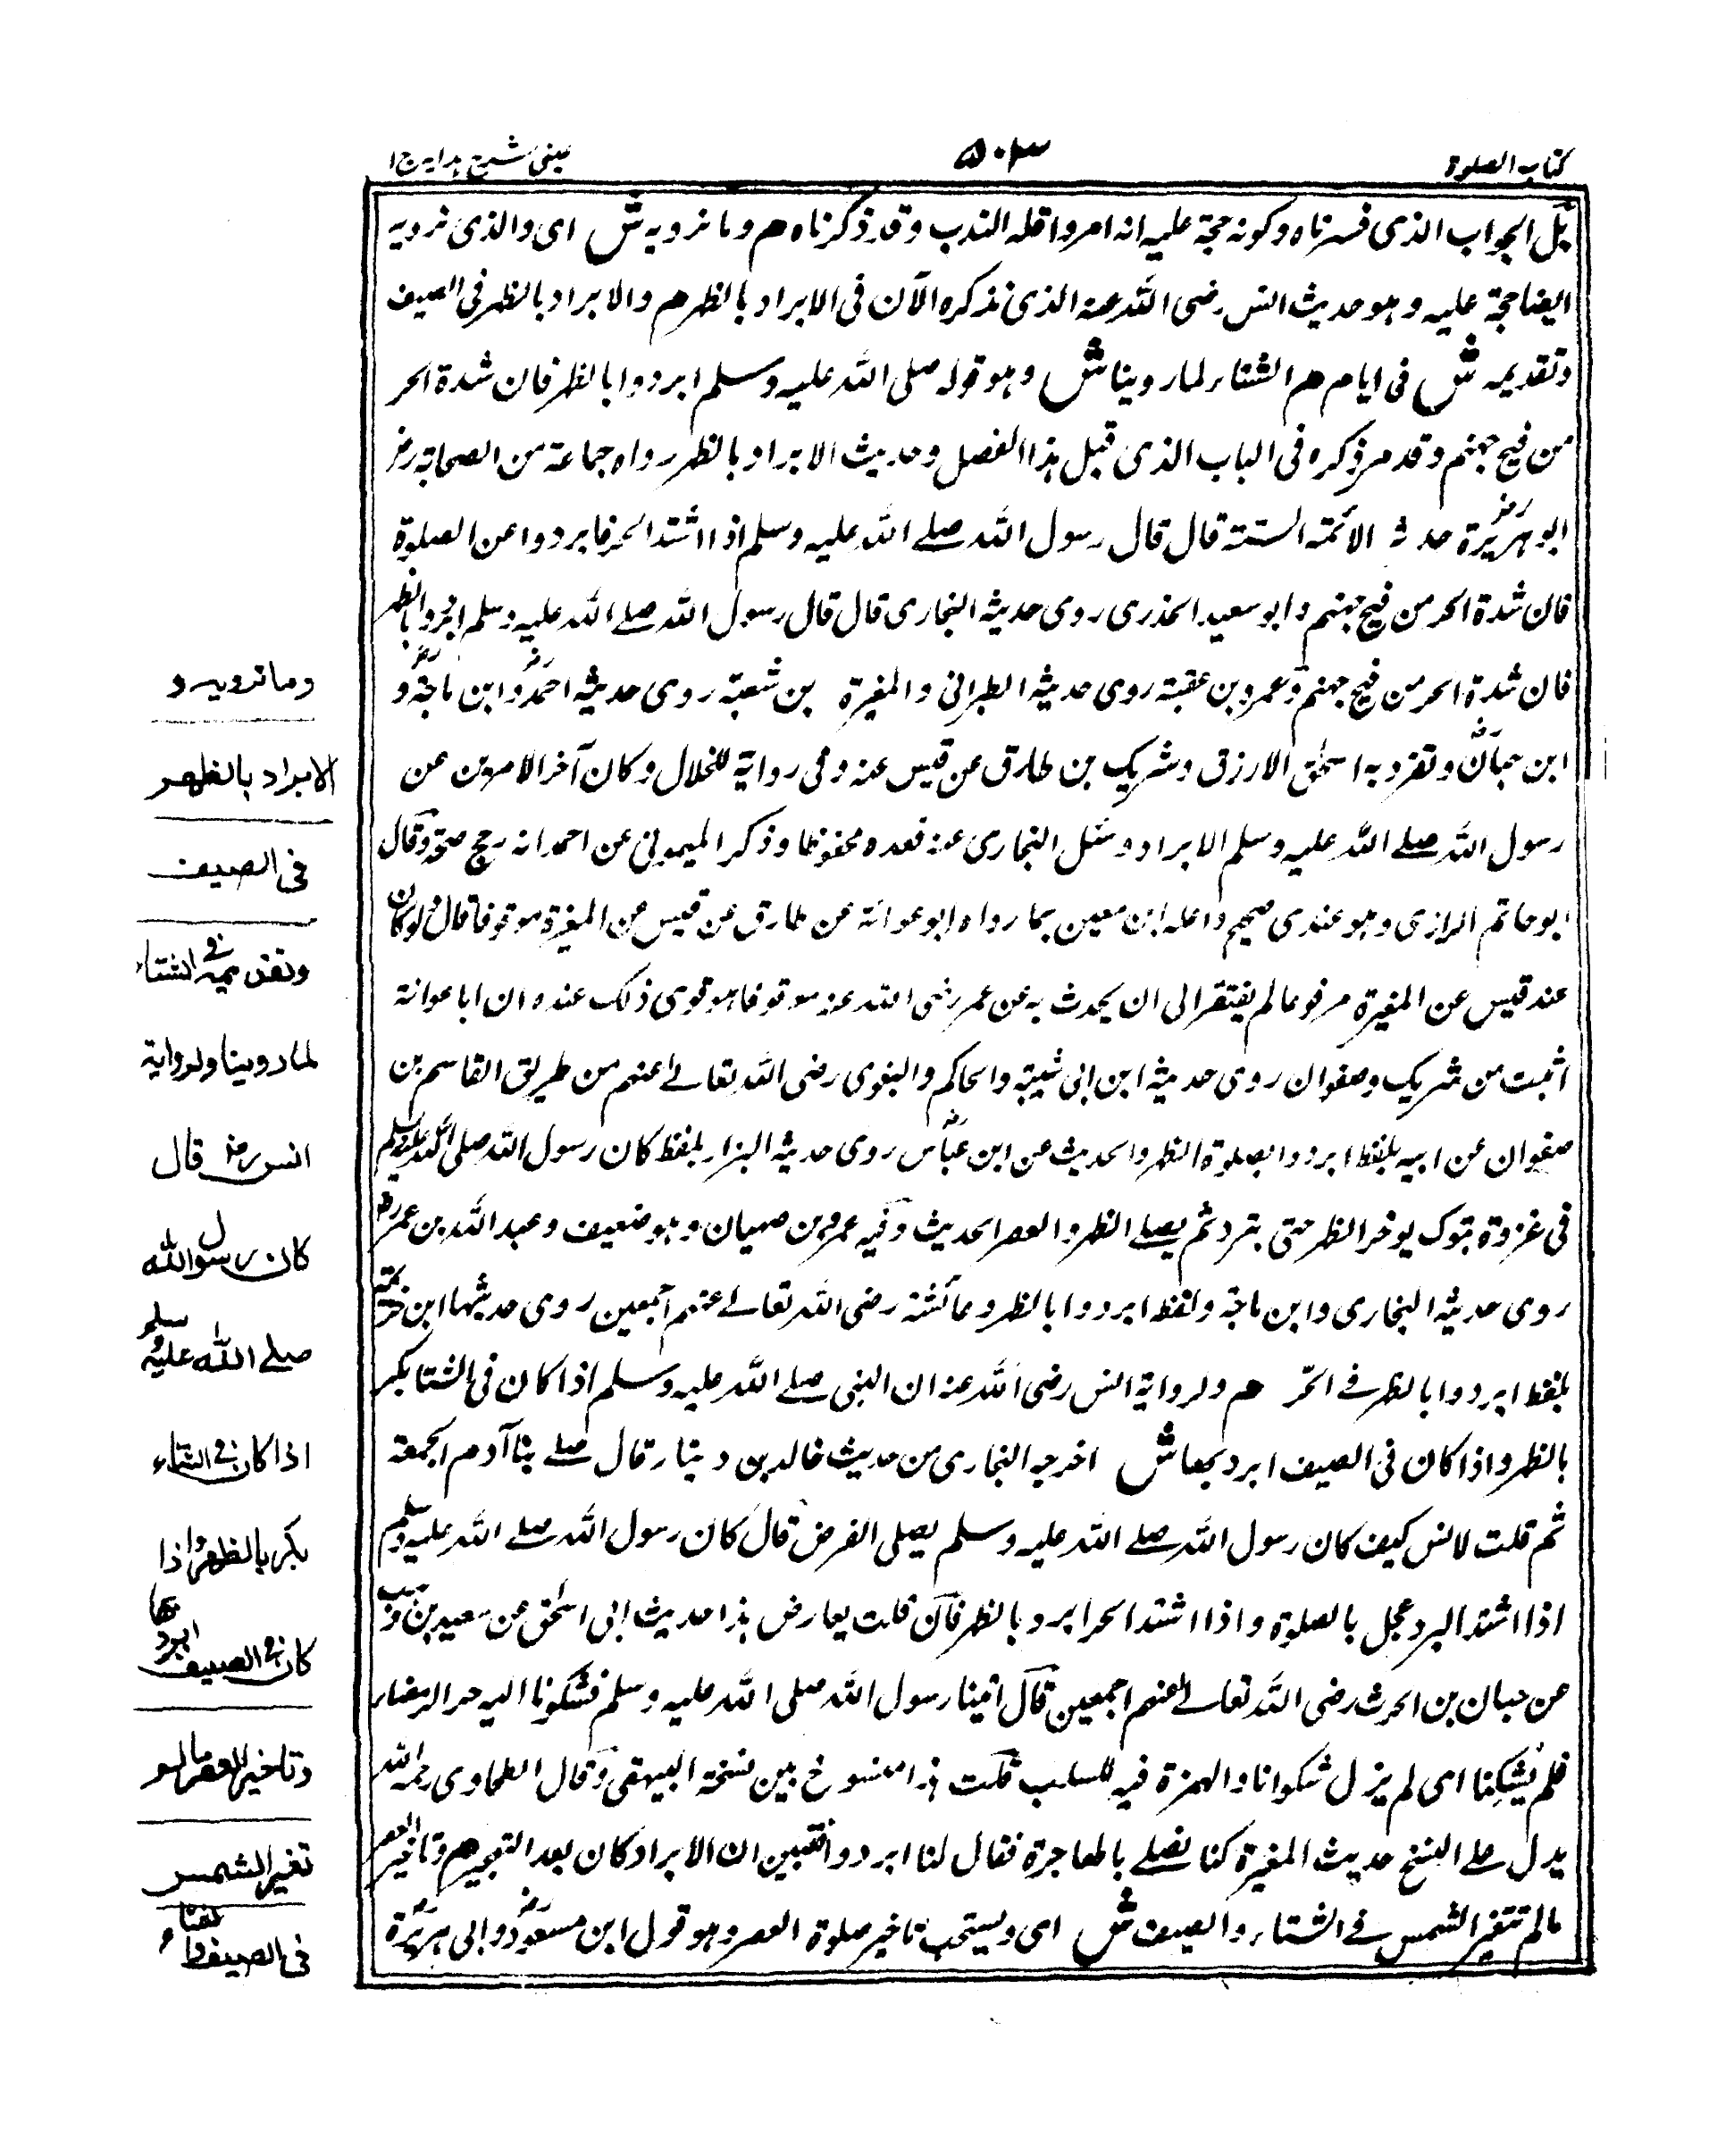 كتاب الصلوة
۵۰۳
عينى شرح هدايه ج ا
بل الجواب الذى فسرناه وكونه حجة عليه انه امر واقله الندب وقد ذكرناه هم وما نرويه ش اى والذى نرويه
ايضا حجة عليه وهو حديث انس رضى الله عنه الذى نذكره الآن فى الابراد بالظهر هم والابراد بالظهر فى الصيف
وتقديمه ش فى ايام هم الشتاء لما روينا ش وهو قوله صلى الله عليه وسلم ابردوا بالظهر فان شدة الحر
من فيح جهنم وقد مر ذكره فى الباب الذى قبل هذا الفصل وحديث الابراد بالظهر رواه جماعة من الصحابة رض
ابو هريرة رض حدثه الائمة الستة قال قال رسول الله صلے الله عليه وسلم اذا اشتد الحر فابردوا عن الصلوة
فان شدة الحر من فيح جهنم وابو سعيد الخذرى روى حديثه البخارى قال قال رسول الله صلے الله عليه وسلم ابردوا بالظهر
فان شدة الحر من فيح جهنم وعمرو بن عقبة روى حديثه الطبرانى والمغيرة بن شعبة روى حديثه احمد وابن ماجة و
ابن حبان وتفرد به اسحق الازرق وشريك بن طارق عن قيس عنه وفى رواية للخلال وكان آخر الامرين عن
رسول الله صلے الله عليه وسلم الابراد وسئل البخارى عنه فعده محفوظا وذكر الميمونى عن احمد انه رجح صحته وقال
ابو حاتم الرازى وهو عندى صحيح واعله ابن معين بما رواه ابو عوانة عن طارق عن قيس عن المغيرة موقوفا قال لو كان
عند قيس عن المغيرة مرفوعا لم يفتقر الى ان يحدث به عن عمر رضى الله عنه موقوفا هو قوى ذلك عنده ان ابا عوانة
اثبت من شريك وصفوان روى حديثه ابن ابى شيبة والحاكم والبغوى رضى الله تعالے عنهم من طريق القاسم بن
صفوان عن ابيه بلفظ ابردوا بصلوة الظهر والحديث عن ابن عباس روى حديثه البزار بلفظ كان رسول الله صلى الله عليه وسلم
فى غزوة تبوك يوخر الظهر حتى يبرد ثم يصلے الظهر والعصر الحديث وفيه عمرو بن صهبان وهو ضعيف وعبد الله بن عمر رض
روى حديثه البخارى وابن ماجة ولفظه ابردوا بالظهر وعائشة رضى الله تعالے عنهم اجمعين روى حديثها ابن خزيمة
بلفظ ابردوا بالظهر فے الحر هم ولرواية انس رضى الله عنه ان النبى صلے الله عليه وسلم اذا كان فى الشتا بكر
بالظهر واذا كان فى الصيف ابرد بها ش اخرجه البخارى من حديث خالد بن دينار قال صلے بنا آدم الجمعة
ثم قلت لانس كيف كان رسول الله صلے الله عليه وسلم يصلى الفرض قال كان رسول الله صلے الله عليه وسلم
اذا اشتد البرد عجل بالصلوة واذا اشتد الحر ابرد بالظهر فان قلت يعارض هذا حديث ابى اسحق عن سعيد بن
عن حبان بن الحرث رضى الله تعالے عنهم اجمعين قال اتينا رسول الله صلى الله عليه وسلم فشكونا اليه حر الرمضاء
فلم يشكنا اى لم يزل شكوانا والهمزة فيه للسلب قلت هذا منسوخ بين نسخته البيهقى وقال الطحاوى رحمه الله
يدل على النسخ حديث المغيرة كنا نصلے بالهاجرة فقال لنا ابردوا فتبين ان الابراد كان بعد التهجير هم وتاخير العصر
مالم تتغير الشمس فے الشتاء والصيف ش اى ويستحب تاخير صلوة العصر وهو قول ابن مسعود وابى هريرة
وما نرويه و
الابراد بالظهر
فى الصيف
وتقديمه فى الشتاء
لما روينا ولرواية
انس رض قال
كان رسول الله
صلے الله عليه وسلم
اذا كان فى الشتاء
بكر بالظهر واذا
كان فى الصيف ابرد بها
وتاخير العصر مالم
تغير الشمس
فى الصيف والشتاء